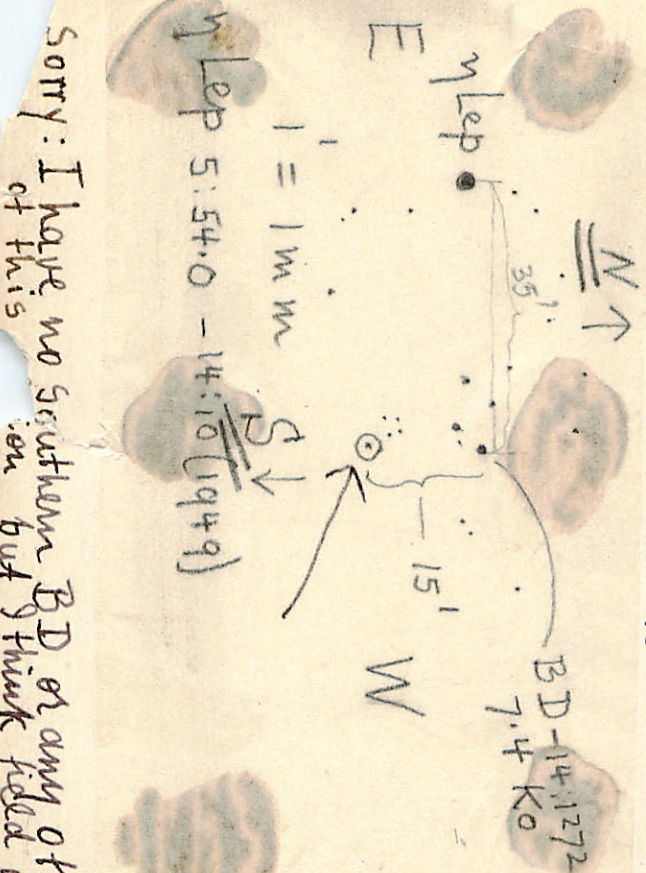 N ↑
BD-14:1272
7.4 K0
35'
η Lep
15'
E
W
S ↓
1' = 1mm
η Lep 5:54.0 - 14:10 (1949)
Sorry: I have no Southern BD or any of
of this
ion but I think field